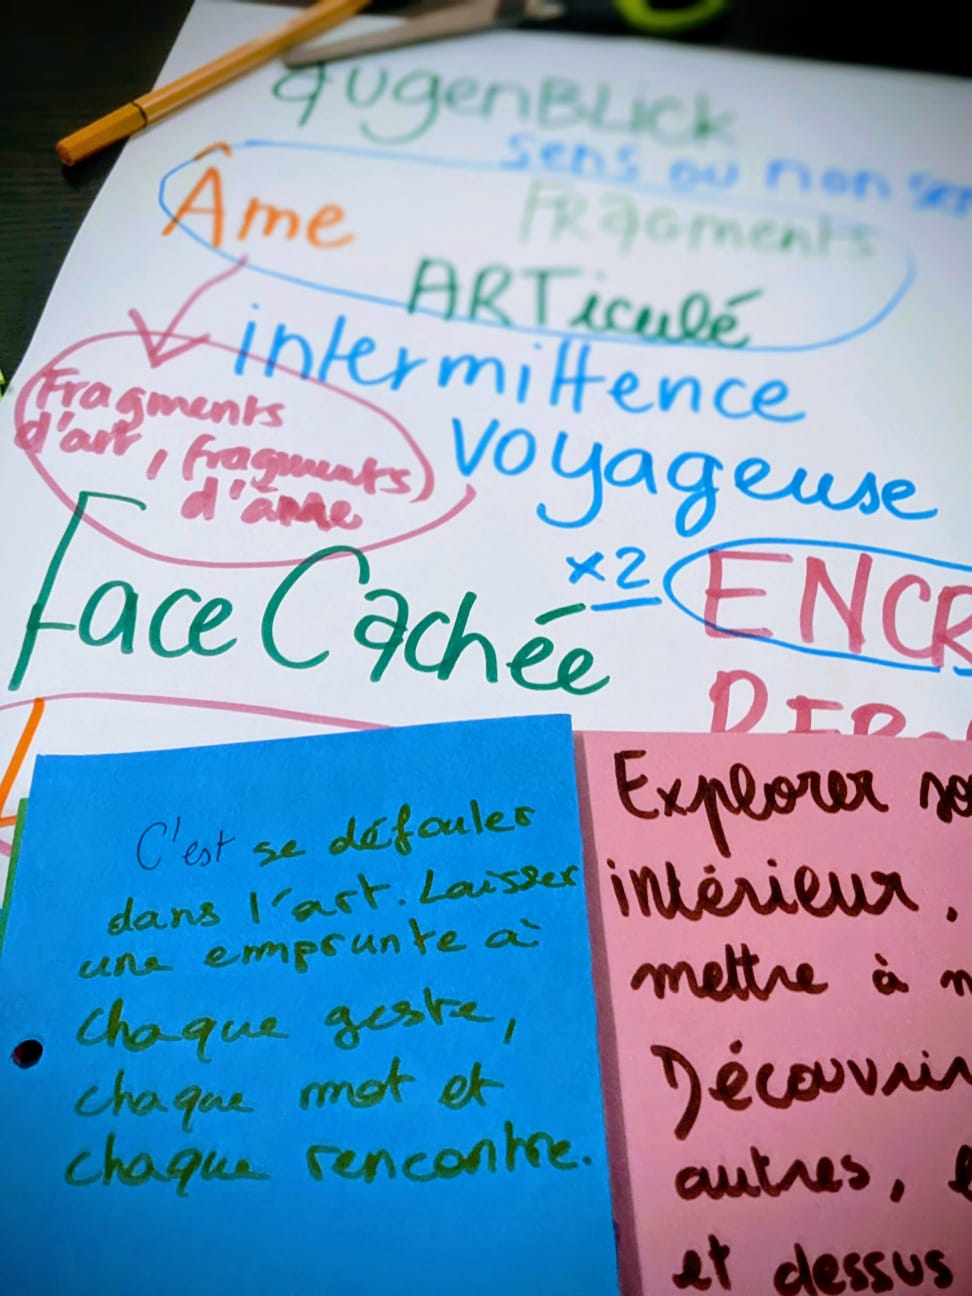 AugenBLick
sens ou non sen
Âme
Fragments
ARTiculé
intermittence
voyageuse
Fragments
d'art, fragments
d'âme
x2
ENCR
Face Cachée
C'est se défouler
dans l'art. Laisser
une emprunte à
chaque geste,
chaque mot et
chaque rencontre.
Explorer so
intérieur.
mettre à n
Découvrir
autres,
et dessus